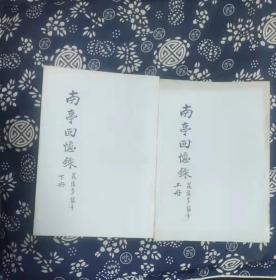 南亭回憶錄
上冊
南亭回憶錄
下冊